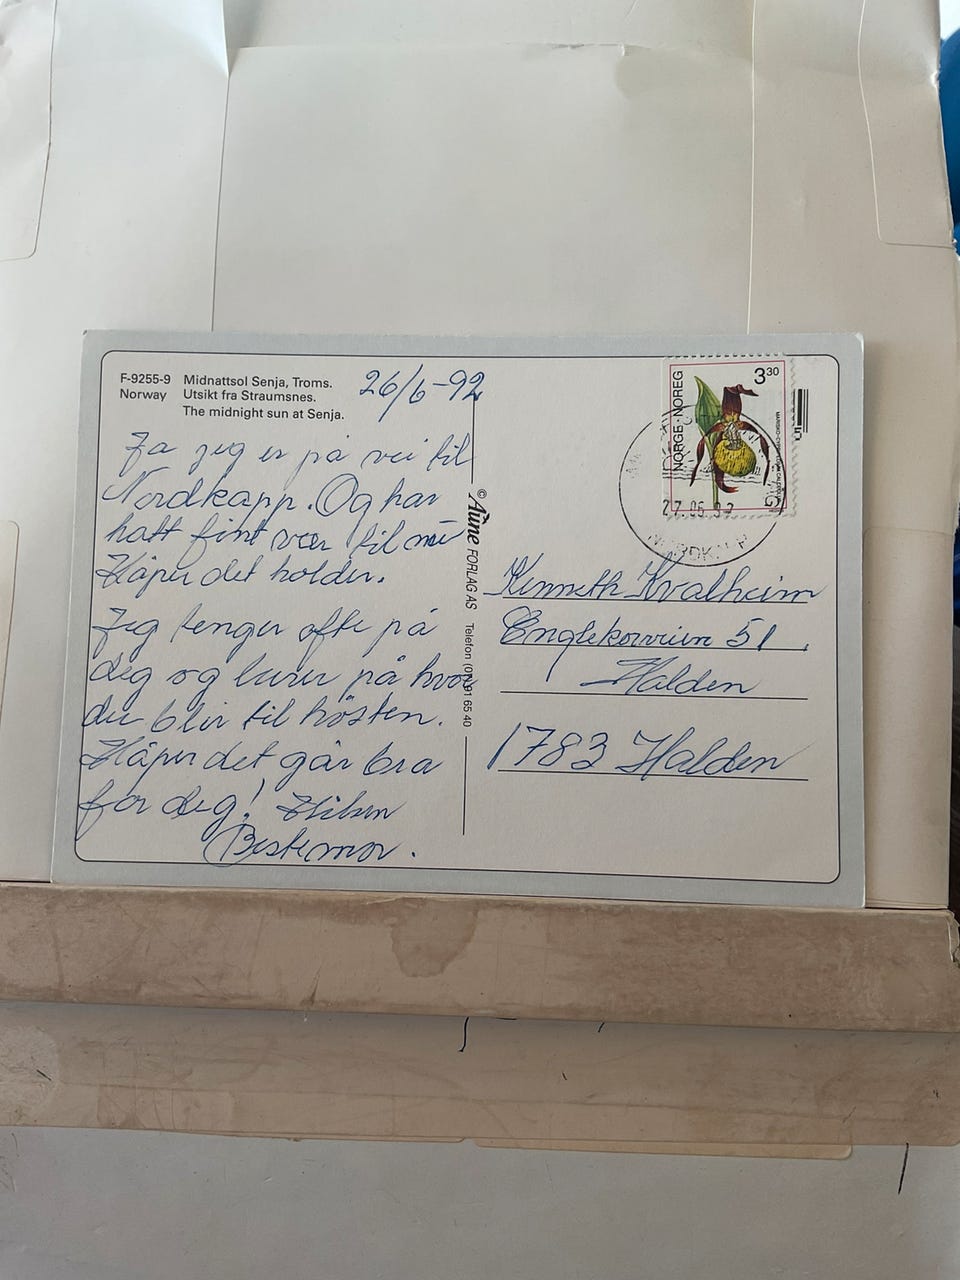 F-9255-9 Midnattsol Senja, Troms.
Norway Utsikt fra Straumsnes.
The midnight sun at Senja.
26/6-92
Ja jeg er på vei til
Nordkapp. Og har
hatt fint vær til nå
Håper det holder.
Jeg tenger ofte på
deg og lurer på hvor
du blir til hösten.
Håper det går bra
for deg! Hilsen
Bestemor.
© Aune FORLAG AS Telefon 91 65 40
NORGE·NOREG
330
27.06.92
NORDKAPP
Kenneth Kvalheim
51
Halden
1783 Halden